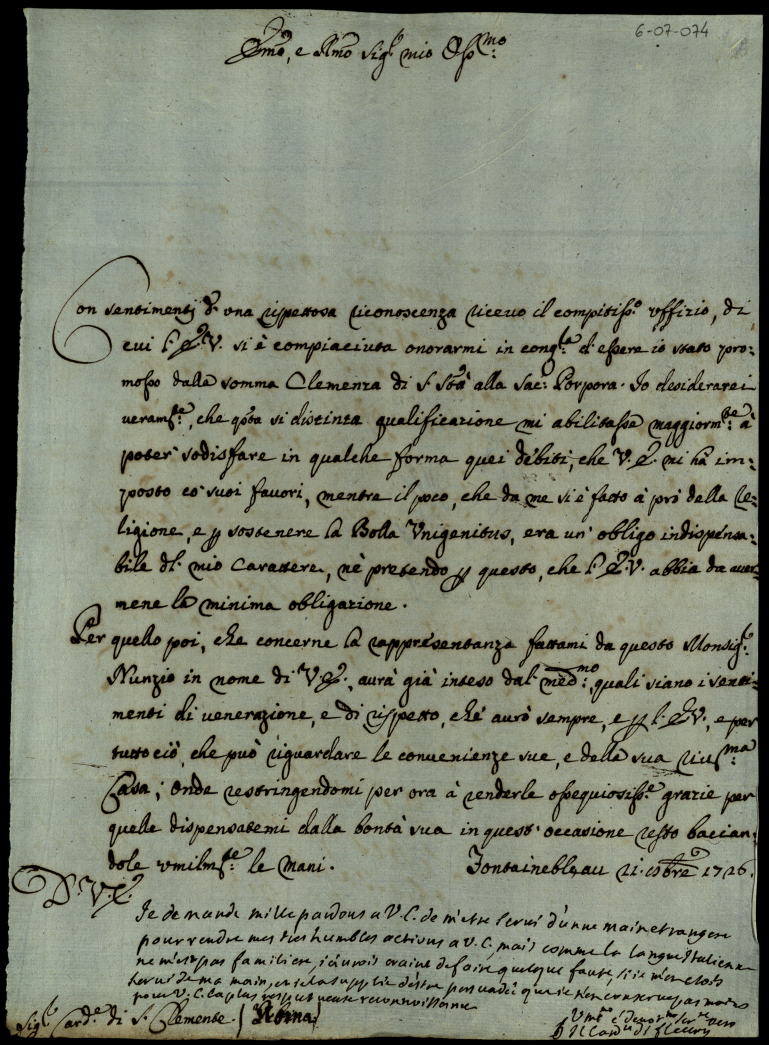 6-07-074
Em̃o, e Rm̃o Sig.r mio Oss.mo
Con sentimenti d' vna rispettosa riconoscenza riceuo il compitiss.o vffizio, di
cui l'E.V. si è compiaciuta onorarmi in cong.ra d'essere io stato pro:
mosso dalla somma Clemenza di S. Stà alla Sac: Porpora. Io desiderarei
ueram.te, che q̃sta si distinta qualificazione mi abilitasse maggiorm.te à
poter sodisfare in qualche forma quei debiti, che V.E. mi hà im:
posto co' suoi fauori, mentre il poco, che da me si è fatto à prò della Re:
ligione, e p sostenere la Bolla Vnigenitus, era un' obligo indispensa:
bile del mio Carattere, nè pretendo p questo, che l'E.V. abbia da auer
mene la minima obligazione.
Per quello poi, che concerne la rappresentanza fattami da questo Monsig.r
Nunzio in nome di V.E., aurà già inteso dal med.mo, quali siano i senti:
menti di uenerazione, e di rispetto, che aurò sempre, e p l'E.V., e per
tutto ciò, che può riguardare le conuenienze sue, e della sua
Casa; Onde restringendomi per ora à renderle ossequiosiss.e grazie per
quelle dispensatemi dalla bontà sua in quest' occasione resto bacian:
dole vmilm.te le mani. Fontainebleau 21. 8bre 1726.
D. V. E.
Je demande mille pardons a V.E. de m'etre servi d'une main etrangere
pour rendre mes tres humbles actions a V.E, mais comme la langue Italienne
ne m'est pas familiere, j'aurois craint de faire quelque faute, si je m'en etois
servi de ma main, et je la supplie d'etre persuadée que je n'en conserve pas moins
pour V.E. la plus respectueuse reconnoissance
Sig.r Card.e di S. Clemente. (Roma)
Vm.mo e deuot.mo ser.re vero
Il Card.le di fleury